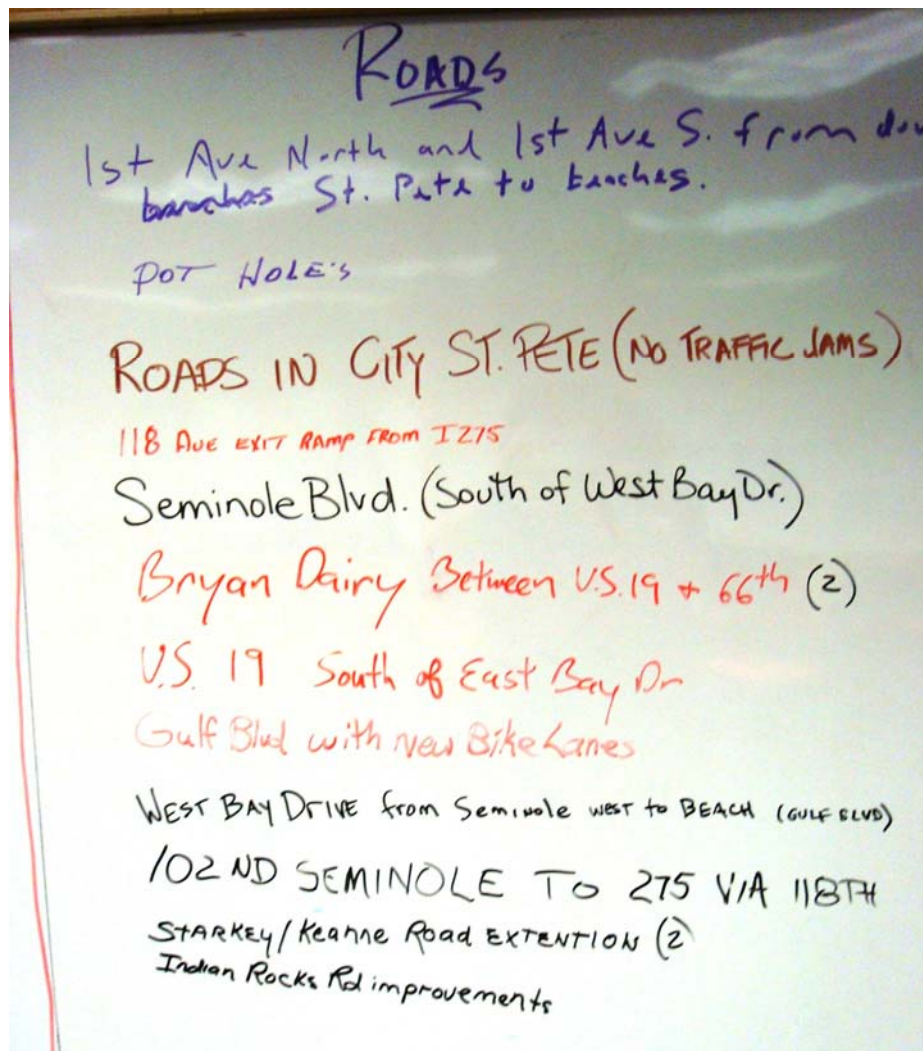 ROADS
1st Ave North and 1st Ave S. from dow
St. Pete to beaches.
POT HOLE'S
ROADS IN CITY ST. PETE (NO TRAFFIC JAMS)
118 AVE EXIT RAMP FROM I275
Seminole Blvd. (South of West Bay Dr.)
Bryan Dairy Between U.S. 19 + 66th (2)
U.S. 19 South of East Bay Dr
Gulf Blvd with New Bike Lanes
WEST BAY DRIVE from Seminole WEST to BEACH (GULF BLVD)
102ND SEMINOLE TO 275 VIA 118TH
STARKEY/Keanne Road EXTENTION (2
Indian Rocks Rd improvements